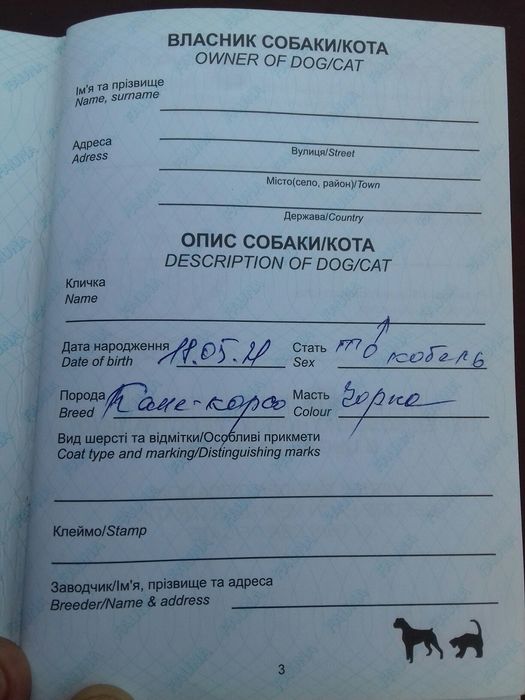 ВЛАСНИК СОБАКИ/КОТА
OWNER OF DOG/CAT
Ім'я та прізвище
Name, surname
Адреса
Adress
Вулиця/Street
Місто(село, район)/Town
Держава/Country
ОПИС СОБАКИ/КОТА
DESCRIPTION OF DOG/CAT
Кличка
Name
Дата народження 18.05.21 Стать кобель
Date of birth Sex
Порода Кане-корсо Масть Чорна
Breed Colour
Вид шерсті та відмітки/Особливі прикмети
Coat type and marking/Distinguishing marks
Клеймо/Stamp
Заводчик/Ім'я, прізвище та адреса
Breeder/Name & address
3